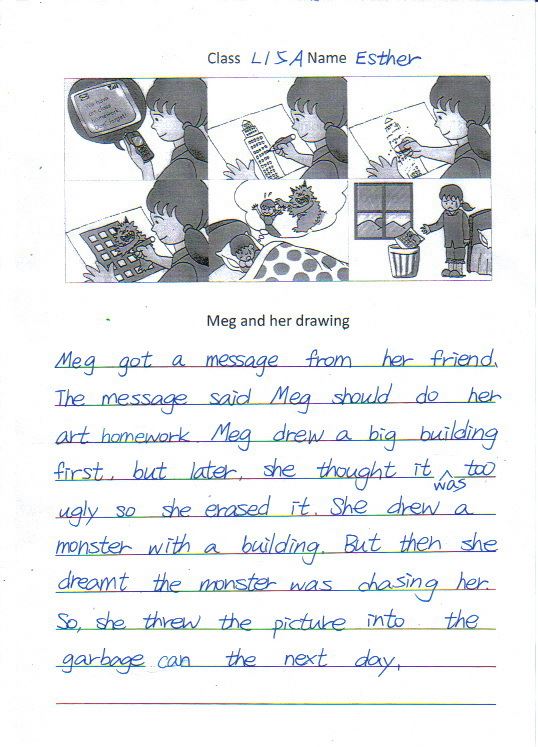 Class LISA Name Esther
We have
an class
homework.
Don't forget!
Meg and her drawing
Meg got a message from her friend.
The message said Meg should do her
art homework. Meg drew a big building
first, but later, she thought it was too
ugly so she erased it. She drew a
monster with a building. But then she
dreamt the monster was chasing her.
So, she threw the picture into the
garbage can the next day.